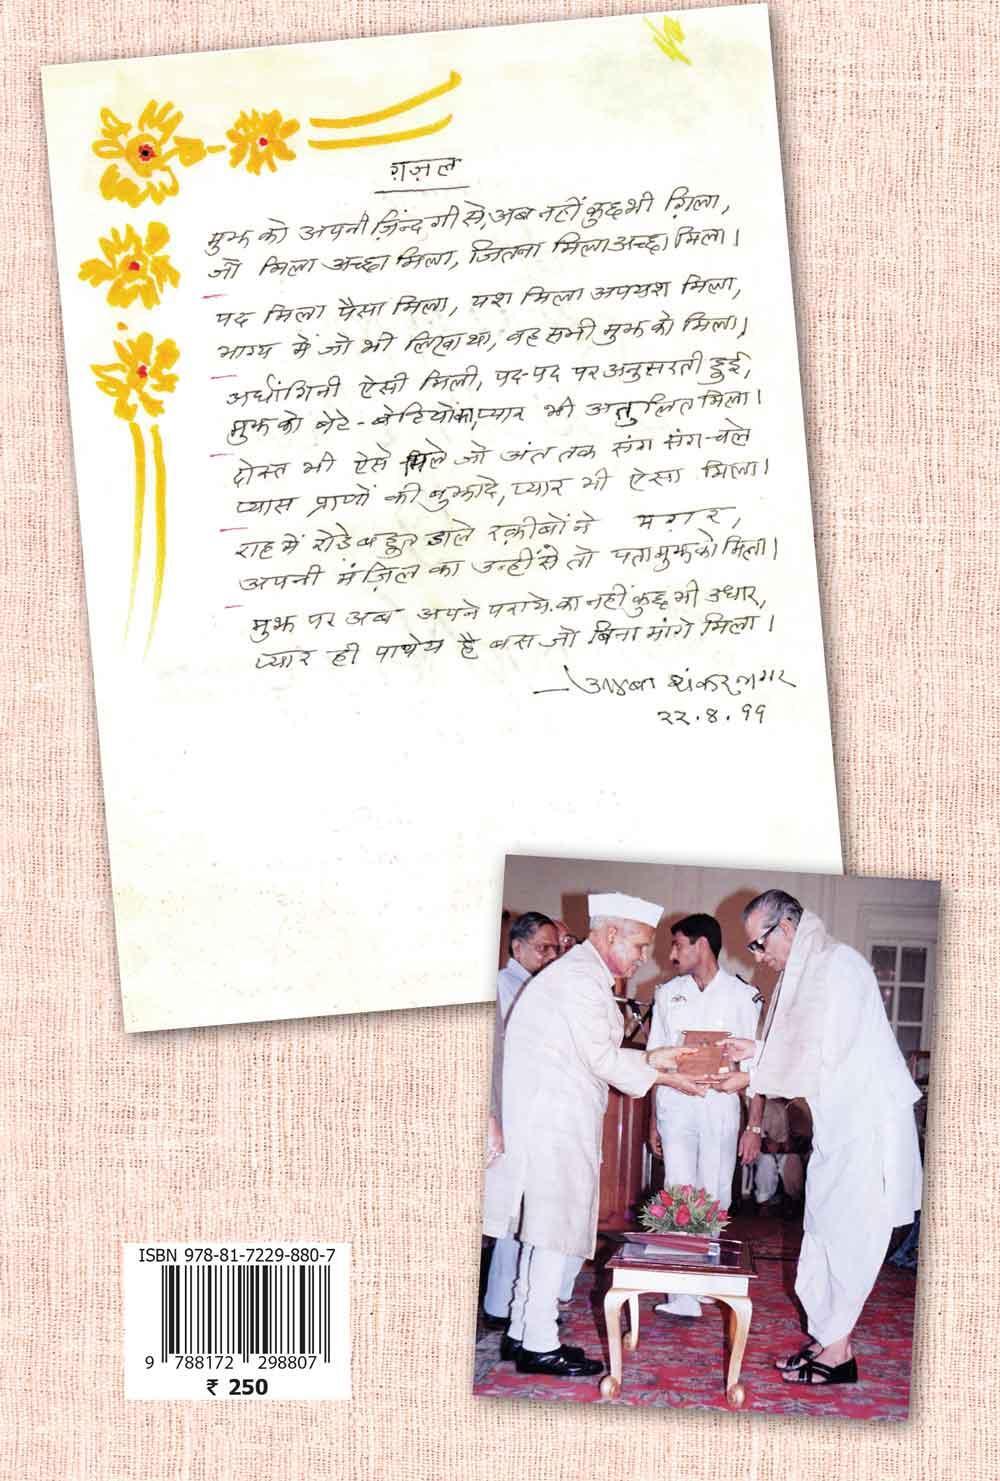 ग़ज़ल
मुझ को अपनी ज़िन्दगी से, अब नहीं कुछ भी ग़िला,
जो मिला अच्छा मिला, जितना मिला अच्छा मिला।
पद मिला पैसा मिला, यश मिला अपयश मिला,
भाग्य में जो भी लिखा था, वह सभी मुझ को मिला।
अर्धांगिनी ऐसी मिली, पद-पद पर अनुसरती हुई,
मुझ को बेटे-बेटियों का, प्यार भी अतुलित मिला।
दोस्त भी ऐसे मिले जो अंत तक संग संग चले
प्यास प्राणों की बुझादे, प्यार भी ऐसा मिला।
राह में रोड़े बहुत डाले रक़ीबों ने मगर,
अपनी मंज़िल का उन्हीं से तो पता मुझको मिला।
मुझ पर अब अपने पराये का नहीं कुछ भी उधार,
प्यार ही पाथेय है बस जो बिना मांगे मिला।
— अम्बा शंकर नागर
२२.४.९९
ISBN 978-81-7229-880-7
9 788172 298807
₹ 250